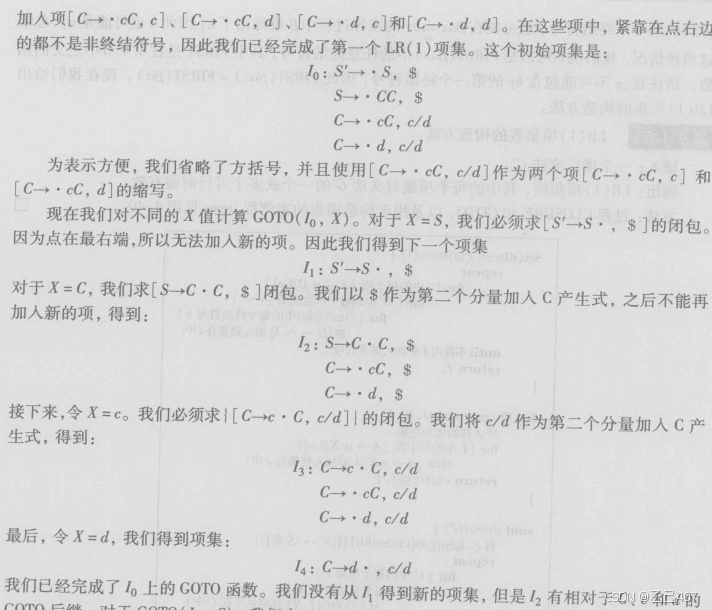 加入项[C→·cC, c]、[C→·cC, d]、[C→·d, c]和[C→·d, d]。在这些项中，紧靠在点右边
的都不是非终结符号，因此我们已经完成了第一个 LR(1)项集。这个初始项集是：
I₀: S′→·S, $
S→·CC, $
C→·cC, c/d
C→·d, c/d
为表示方便，我们省略了方括号，并且使用[C→·cC, c/d]作为两个项[C→·cC, c] 和
[C→·cC, d]的缩写。
现在我们对不同的 X 值计算 GOTO(I₀, X)。对于 X=S，我们必须求[S′→S·, $]的闭包。
因为点在最右端,所以无法加入新的项。因此我们得到下一个项集
I₁: S′→S·, $
对于 X=C，我们求[S→C·C, $]闭包。我们以 $ 作为第二个分量加入 C 产生式，之后不能再
加入新的项，得到：
I₂: S→C·C, $
C→·cC, $
C→·d, $
接下来,令 X=c。我们必须求{[C→c·C, c/d]}的闭包。我们将 c/d 作为第二个分量加入 C 产
生式，得到：
I₃: C→c·C, c/d
C→·cC, c/d
C→·d, c/d
最后，令 X=d，我们得到项集：
I₄: C→d·, c/d
我们已经完成了 I₀ 上的 GOTO 函数。我们没有从 I₁ 得到新的项集，但是 I₂ 有相对于 和 的